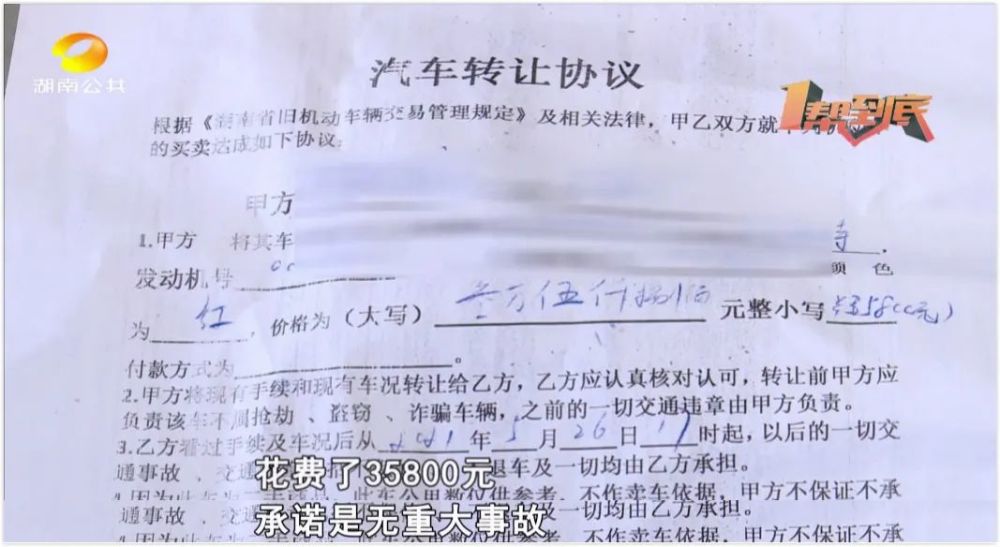 湖南公共
1帮到底
汽车转让协议
根据《湖南省旧机动车辆交易管理规定》及相关法律，甲乙双方就
的买卖达成如下协议：
甲方
1.甲方 将其车
发动机号 颜色
为 红 ，价格为（大写） 叁万伍仟捌佰 元整小写 35800元）
付款方式为 。
2.甲方将现有手续和现有车况转让给乙方，乙方应认真核对认可，转让前甲方应
负责该车不属抢劫、盗窃、诈骗车辆，之前的一切交通违章由甲方负责。
3.乙方看过手续及车况后从 2021 年 5 月 26 日 17 时起，以后的一切交
通事故、交通 退车及一切均由乙方承担。
花费了35800元
此车公里数仅供参考，不作卖车依据，甲方不保证不承
通事故、交通 及一切均由乙方承担。
承诺是无重大事故
不作卖车依据，甲方不保证不承